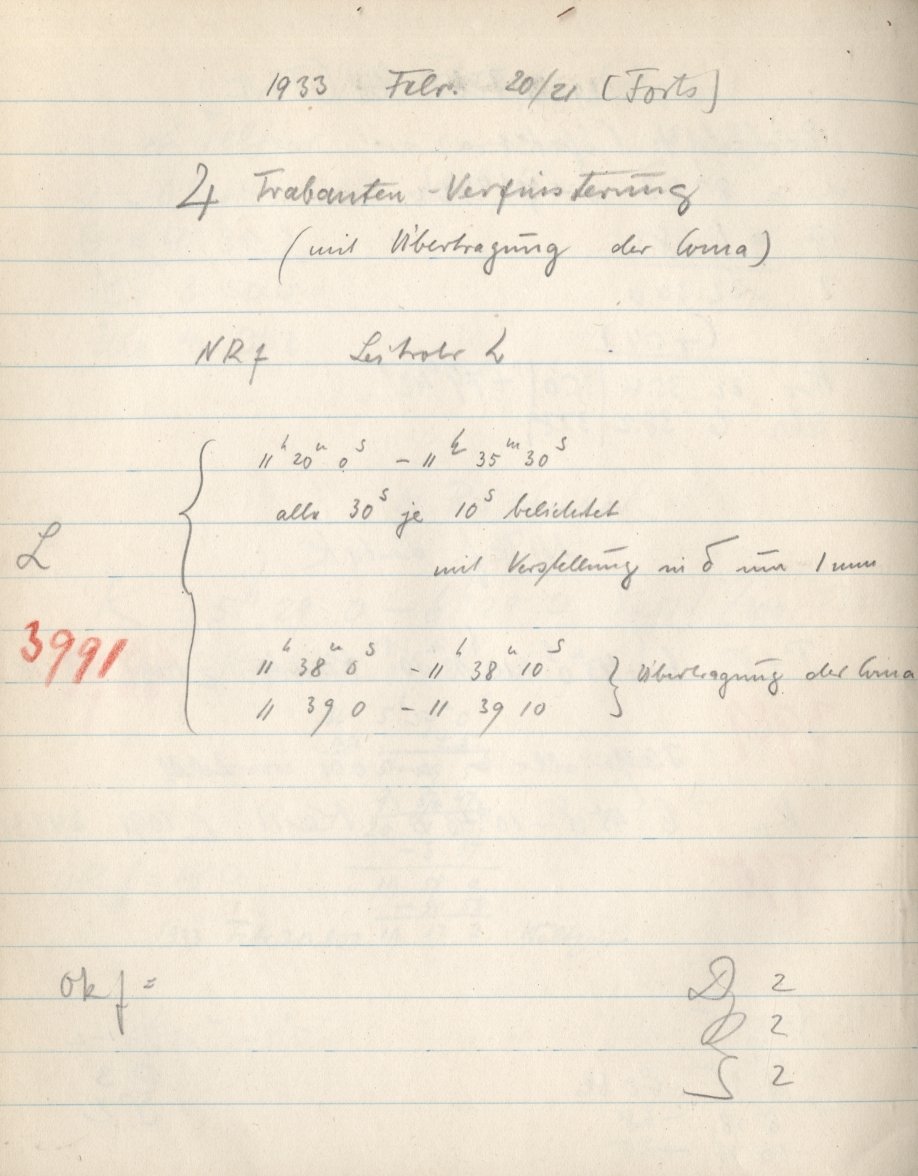 1933 Febr. 20/21 [Forts]
♃ Trabanten-Verfinsterung
(mit Übertragung der Coma)
NRf Leitrohr L
11ʰ 20ᵐ 0ˢ – 11ʰ 35ᵐ 30ˢ
alle 30ˢ je 10ˢ belichtet
mit Verstellung in δ um 1 mm
L
3991
11ʰ 38ᵐ 0ˢ – 11ʰ 38ᵐ 10ˢ } Übertragung der Coma
11 39 0 – 11 39 10
Okf =
D 2
R 2
S 2